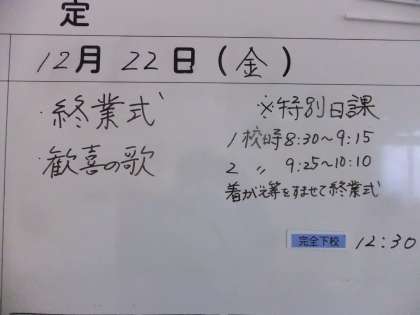 定
12月22日(金)
・終業式
・歓喜の歌
※特別日課
1校時8:30~9:15
2 〃 9:25~10:10
着がえ等をすませて終業式
完全下校 12:30